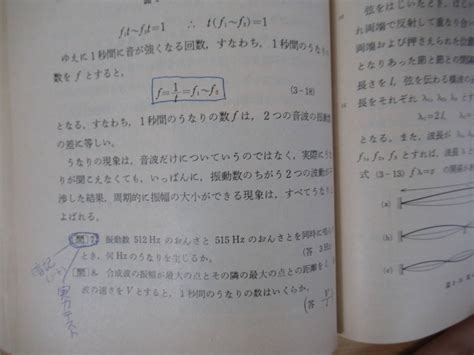 f₁t～f₂t=1 ∴ t(f₁～f₂)=1
ゆえに1秒間に音が強くなる回数，すなわち，1秒間のうなり
数を f とすると，
f=1/t=f₁～f₂ (3-18)
となる．すなわち，1秒間のうなりの数 f は，2つの音波の振動
の差に等しい．
うなりの現象は，音波だけについていうのではなく，実際にう
が聞こえなくても，いっぱんに，振動数のちがう2つの波動が
渉した結果，周期的に振幅の大小ができる現象は，すべてうなり
よばれる．
〔問〕7. 振動数 512 Hz のおんさと 515 Hz のおんさとを同時に鳴ら
とき，何Hzのうなりを生じるか． (答 3 Hz)
〔問〕8. 合成波の振幅が最大の点とその隣の最大の点との距離を l
波の速さを V とすると，1秒間のうなりの数はいくらか．
(答 V/l)
実力テスト
(a)
(b)
(c)
をしないとき
れ両端で反射して重なり合っ
両端および押さえられた位置
となりあった節と節との間隔
長さを l，弦を伝わる横波の
長をそれぞれ
λ₁=2l,
となる．また，波長が
とすれば，
式 (3-13) fλ=v の関係が